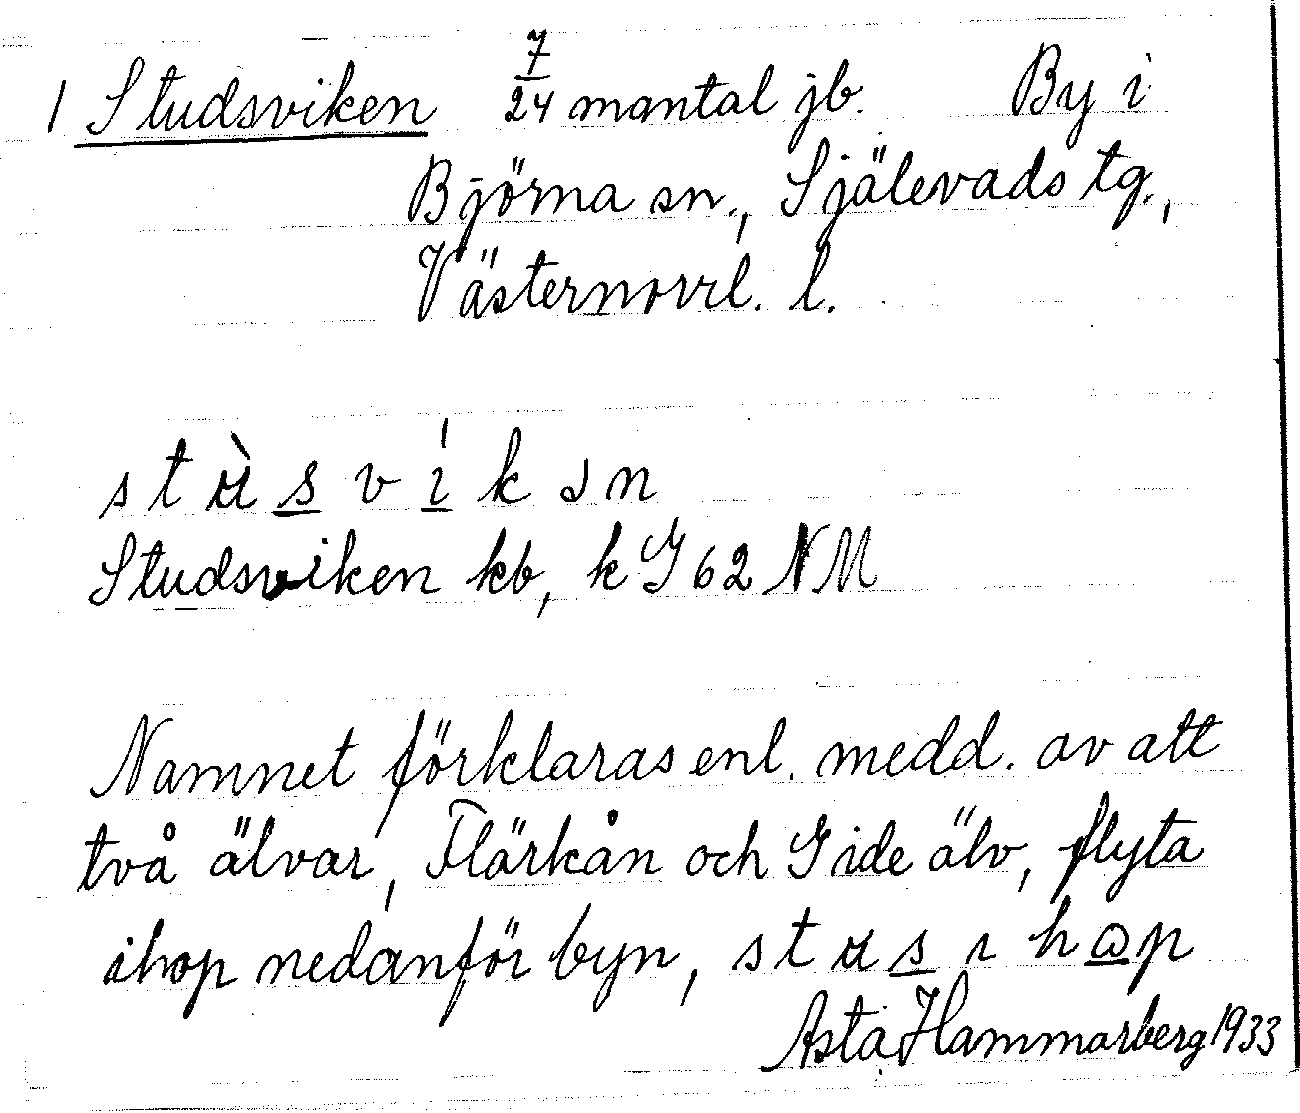 1 Studsviken 7/24 mantal jb. By i
Björna sn., Själevads tg.,
Västernorrl. l.
s t ʉ̀ s v í k ɹ n
Studsviken kb, k G 62 NM
Namnet förklaras enl. medd. av att
två älvar, Flärkån och Gide älv, flyta
ihop nedanför byn, s t ʉ s ı h a p
Asta Hammarberg 1933